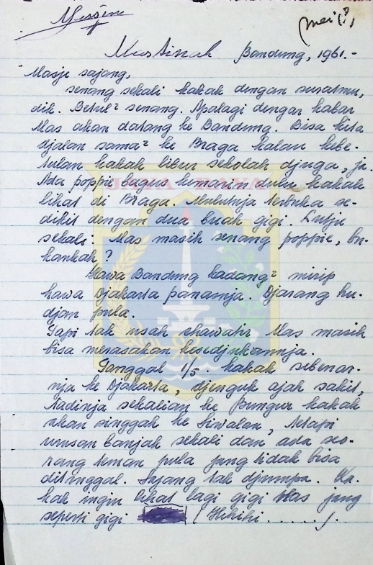 mei(?)
Bandung, 1961.-
Masje sajang,
senang sekali kakak dengan suratmu,
dik. Betul² senang. Apalagi dengan kabar
Mas akan datang ke Bandung. Bisa kita
djalan sama² ke Braga kalau kebe-
tulan kakak libur sekolah djuga, ja.
Ada poppie bagus kemarin dulu kakak
lihat di Braga. Mulutnja terbuka se-
dikit dengan dua buah gigi. Lutju
sekali. Mas masih senang poppie, bu-
kankah?
Hawa Bandung kadang² mirip
hawa Djakarta panasnja. Djarang hu-
djan pula.
Tapi tak usah chawatir Mas masih
bisa merasakan kesedjukannja.
Tanggal 1/5 kakak sebenar-
nja ke Djakarta, djenguk ajah sakit,
Tadinja sekalian ke Bungur kakak
akan singgah ke Kiwalan, tetapi
urusan banjak sekali dan ada seo-
rang teman pula jang tidak bisa
ditinggal. Sajang tak djumpa. Ka-
kak ingin lihat lagi gigi Mas jang
seperti gigi (Hihihi.....).